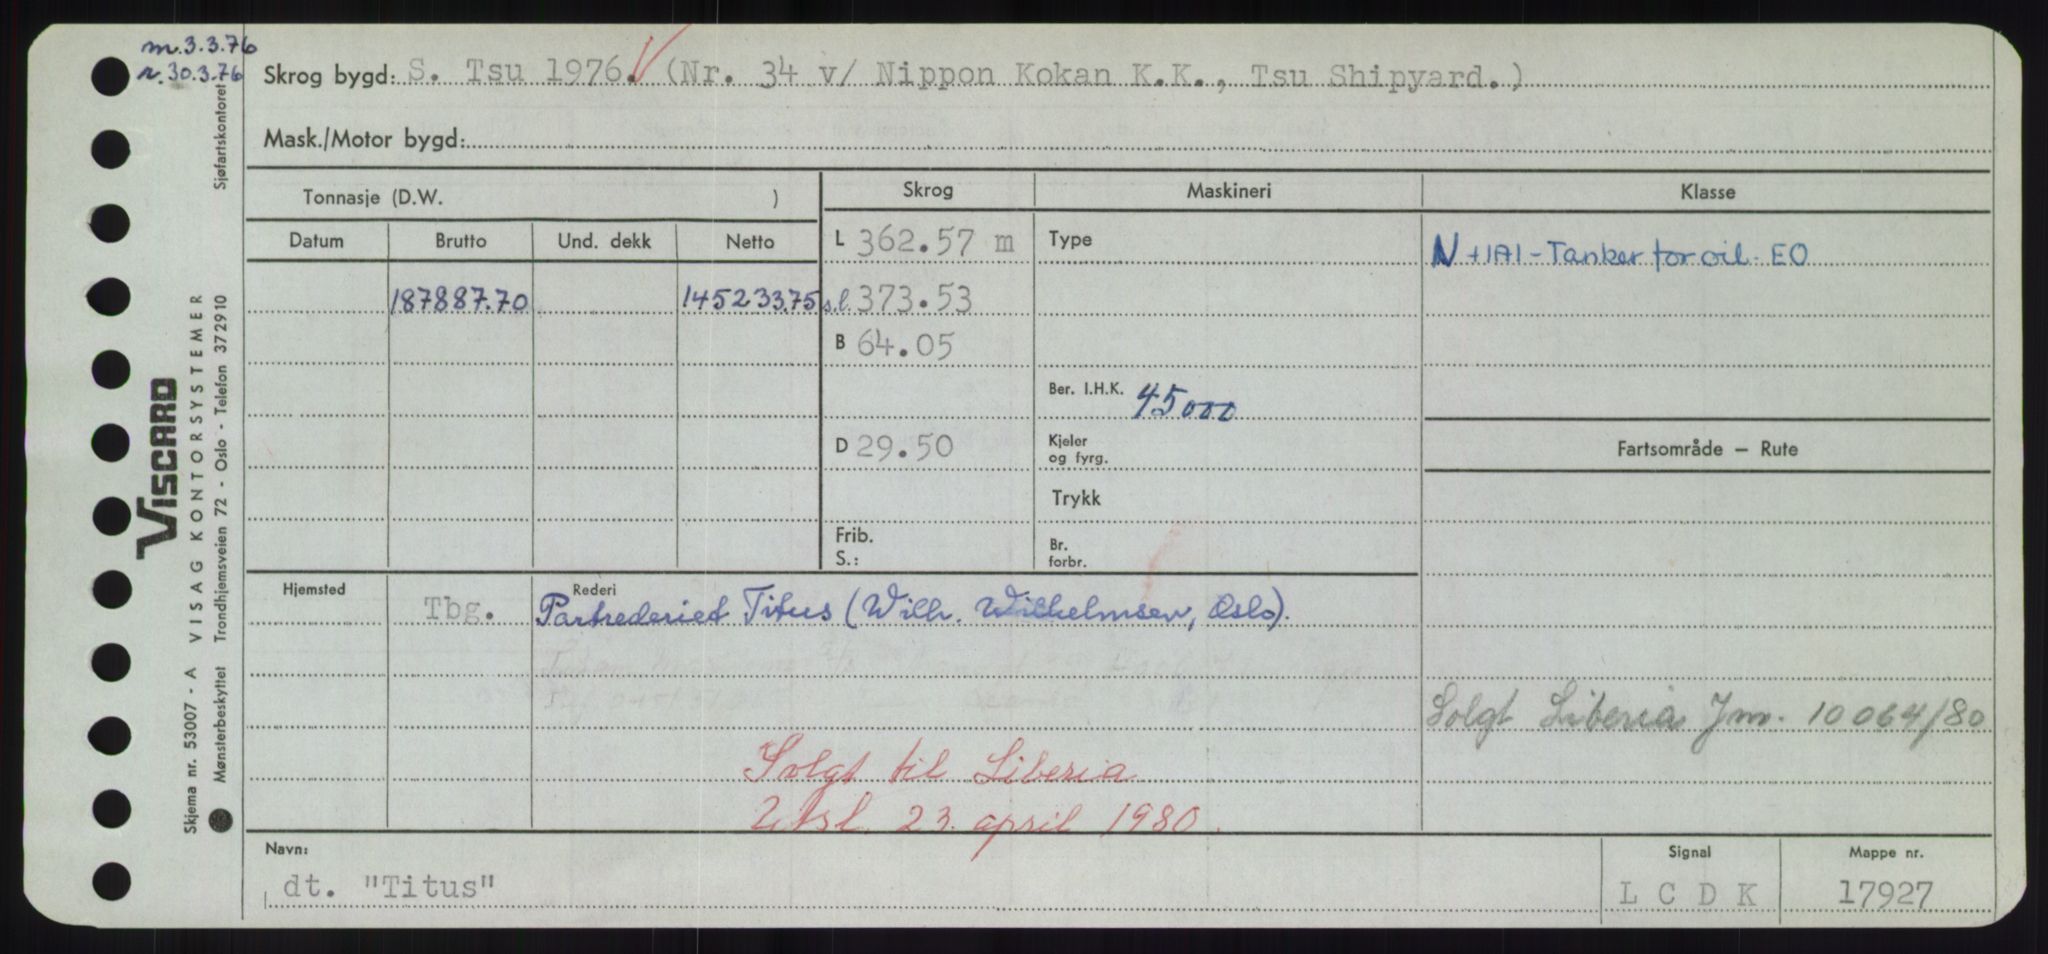 m. 3.3.76
r. 30.3.76
Skrog bygd: S. Tsu 1976. (Nr. 34 v/ Nippon Kokan K.K., Tsu Shipyard.)
Mask./Motor bygd:
Tonnasje (D.W. )
Skrog
Maskineri
Klasse
Datum
Brutto
Und. dekk
Netto
L 362.57 m
Type
N +1A1 - Tanker for oil - EO
187887.70
145233.75
s.l. 373.53
B 64.05
Ber. I.H.K. 45000
D 29.50
Kjeler
og fyrg.
Fartsområde — Rute
Trykk
Frib.
S.:
Br.
forbr.
Hjemsted
Rederi
Tbg.
Partrederiet Titus (Wilh. Wilhelmsen, Oslo).
Solgt Liberia Jm. 10064/80
Solgt til Liberia
Utsl. 23. april 1980.
Navn:
dt. "Titus"
Signal
L C D K
Mappe nr.
17927
Sjøfartskontoret
VISCARD
VISAG KONTORSYSTEMER
Skjema nr. 53007 - A
Mønsterbeskyttet Trondhjemsveien 72 - Oslo - Telefon 372910